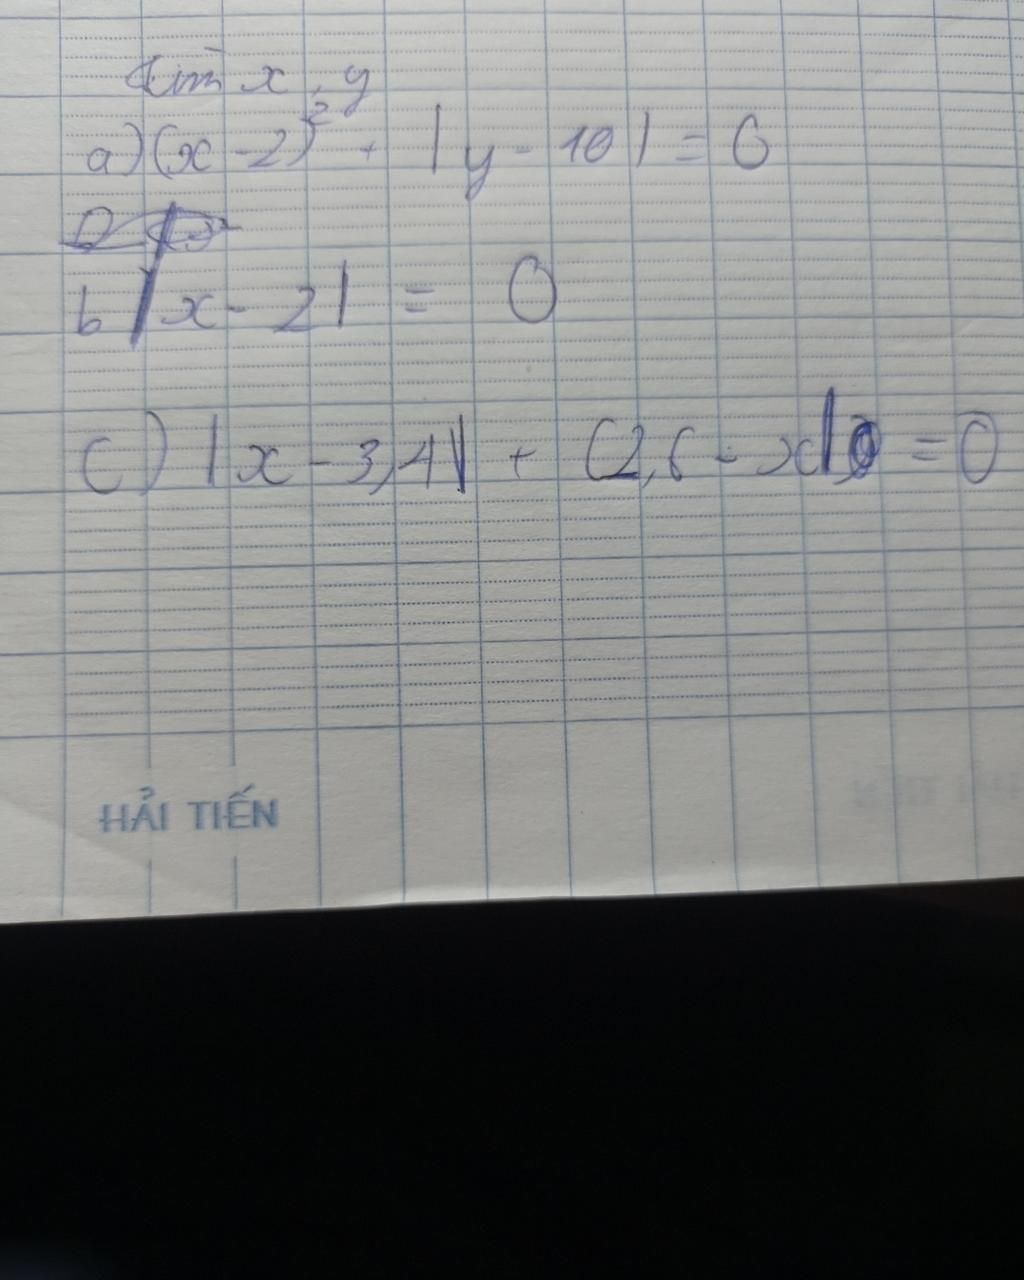 tìm x, y
a) (x - 2)² + |y - 10| = 0
b |x - 2| = 0
c) |x - 3,4| + (2,6 - x| = 0
HẢI TIẾN